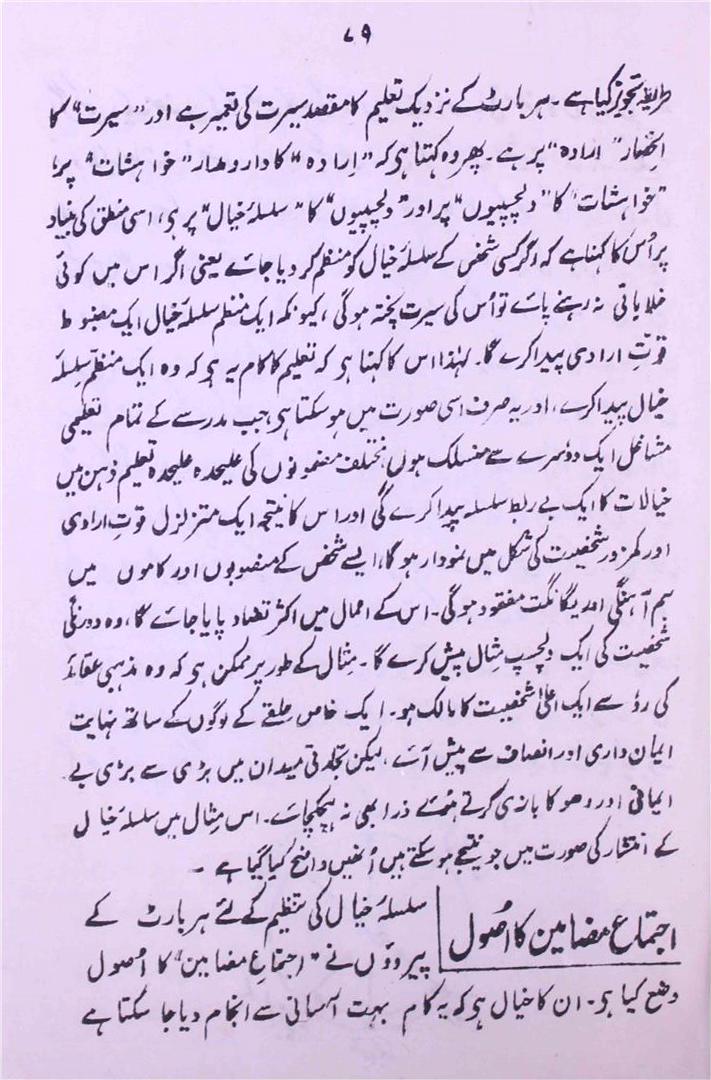 ۷۹
طریقہ تجویز کیا ہے۔ ہربارٹ کے نزدیک تعلیم کا مقصد سیرت کی تعمیر ہے اور "سیرت" کا
انحصار "ارادہ" پر ہے۔ پھر وہ کہتا ہی کہ "اِرادہ" کا دارومدار "خواہشات" پر،
"خواہشات" کا "دلچسپیوں" پر اور "دلچسپیوں" کا "سلسلۂ خیال" پر ہی، اسی منطق کی بنیاد
پر اُس کا کہنا ہے کہ اگر کسی شخص کے سلسلۂ خیال کو منظم کر دیا جائے یعنی اگر اس میں کوئی
خلا باقی نہ رہنے پائے تو اُس کی سیرت پختہ ہوگی، کیونکہ ایک منظم سلسلۂ خیال ایک مضبوط
قوتِ ارادی پیدا کرے گا۔ لہٰذا اس کا کہنا ہی کہ تعلیم کا کام یہ ہی کہ وہ ایک منظم سلسلۂ
خیال پیدا کرے، اور یہ صرف اسی صورت میں ہو سکتا ہی جب مدرسے کے تمام تعلیمی
مشاغل ایک دوسرے سے منسلک ہوں، مختلف مضمونوں کی علیحدہ علیحدہ تعلیم ذہن میں
خیالات کا ایک بے ربط سلسلہ پیدا کرے گی اور اس کا نتیجہ ایک متزلزل قوتِ ارادی
اور کمزور شخصیت کی شکل میں نمودار ہوگا، ایسے شخص کے منصوبوں اور کاموں میں
ہم آہنگی اور یگانگت مفقود ہوگی۔ اس کے اعمال میں اکثر تضاد پایا جائے گا، وہ دورنگی
شخصیت کی ایک دلچسپ مثال پیش کرے گا۔ مثال کے طور پر ممکن ہی کہ وہ مذہبی عقائد
کی رو سے ایک اعلیٰ شخصیت کا مالک ہو۔ ایک خاص حلقے کے لوگوں کے ساتھ نہایت
ایمان داری اور انصاف سے پیش آئے، لیکن تجارتی میدان میں بڑی سے بڑی بے
ایمانی اور دھوکا بازی کرتے ہوئے ذرا بھی نہ ہچکچائے۔ اس مثال میں سلسلۂ خیال
کے انتشار کی صورت میں جو نتیجے ہو سکتے ہیں اُنھیں واضح کیا گیا ہے۔
اجتماع مضامین کا اُصول
سلسلۂ خیال کی تنظیم کے لئے ہربارٹ کے
پیروؤں نے "اجتماعِ مضامین" کا اُصول
وضع کیا ہی۔ ان کا خیال ہی کہ یہ کام بہت آسانی سے انجام دیا جا سکتا ہے